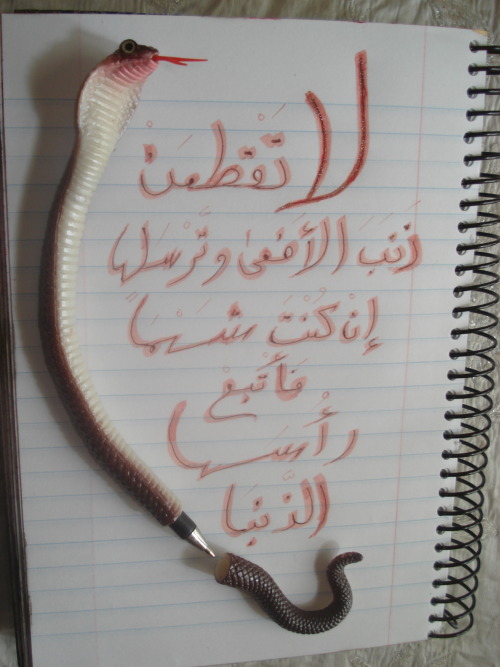 لا تَقْطَعَنْ
ذَنَبَ الأَفْعىٰ وتُرْسِلَها
إِنْ كُنْتَ شَهْمًا
فَأَتْبِعْ
رأْسَها
الذَّنَبَا